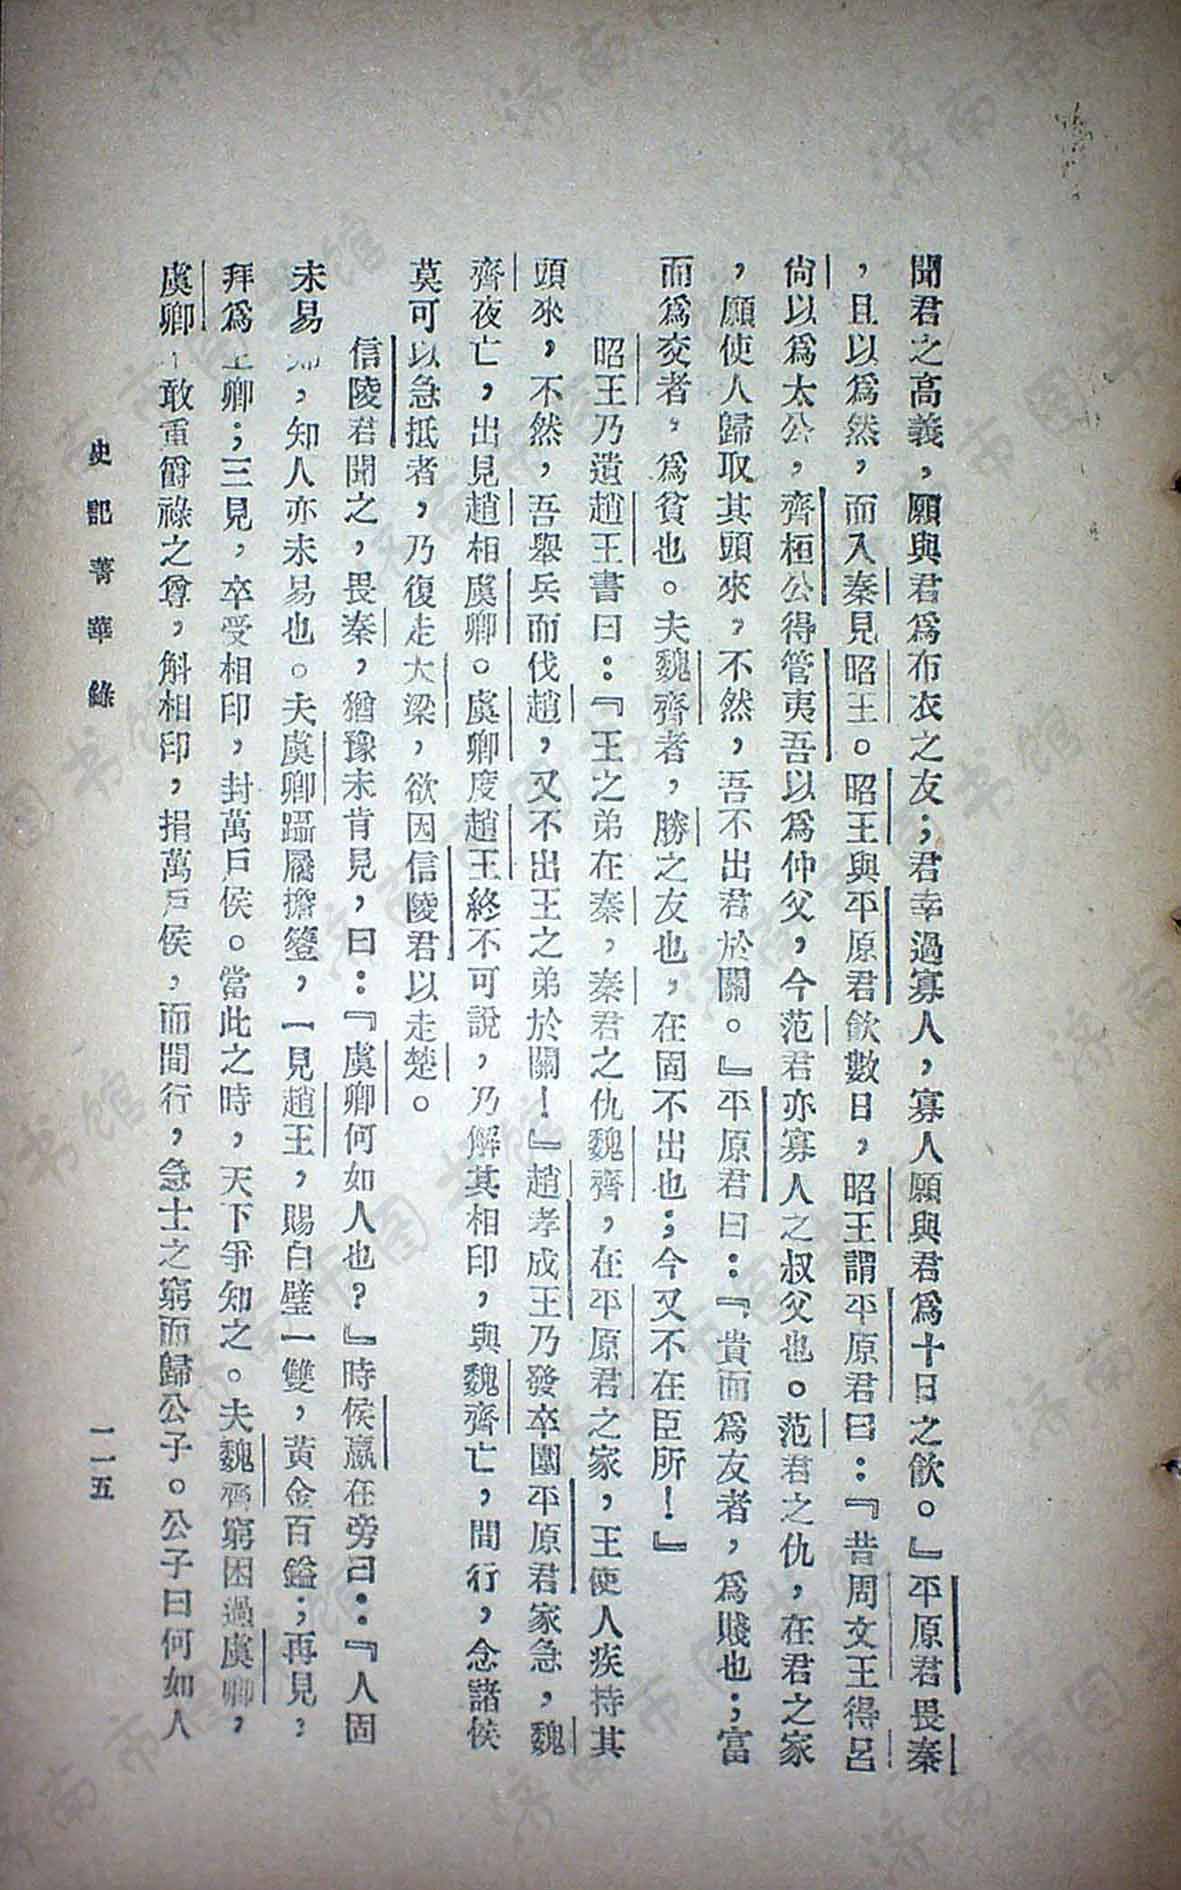 聞君之高義，願與君爲布衣之友；君幸過寡人，寡人願與君爲十日之飲。』平原君畏秦
，且以爲然，而入秦見昭王。昭王與平原君飲數日，昭王謂平原君曰：『昔周文王得呂
尙以爲太公，齊桓公得管夷吾以爲仲父，今范君亦寡人之叔父也。范君之仇，在君之家
，願使人歸取其頭來，不然，吾不出君於關。』平原君曰：『貴而爲友者，爲賤也；富
而爲交者，爲貧也。夫魏齊者，勝之友也，在固不出也；今又不在臣所！』
昭王乃遺趙王書曰：『王之弟在秦，秦君之仇魏齊，在平原君之家，王使人疾持其
頭來，不然，吾舉兵而伐趙，又不出王之弟於關！』趙孝成王乃發卒圍平原君家急，魏
齊夜亡，出見趙相虞卿。虞卿度趙王終不可說，乃解其相印，與魏齊亡，間行，念諸侯
莫可以急抵者，乃復走大梁，欲因信陵君以走楚。
信陵君聞之，畏秦，猶豫未肯見，曰：『虞卿何如人也？』時侯嬴在旁曰：『人固
未易知，知人亦未易也。夫虞卿躡屩擔簦，一見趙王，賜白璧一雙，黃金百鎰；再見，
拜爲上卿；三見，卒受相印，封萬戶侯。當此之時，天下爭知之。夫魏齊窮困過虞卿，
虞卿不敢重爵祿之尊，解相印，捐萬戶侯，而間行，急士之窮而歸公子。公子曰何如人
史記菁華錄
一一五